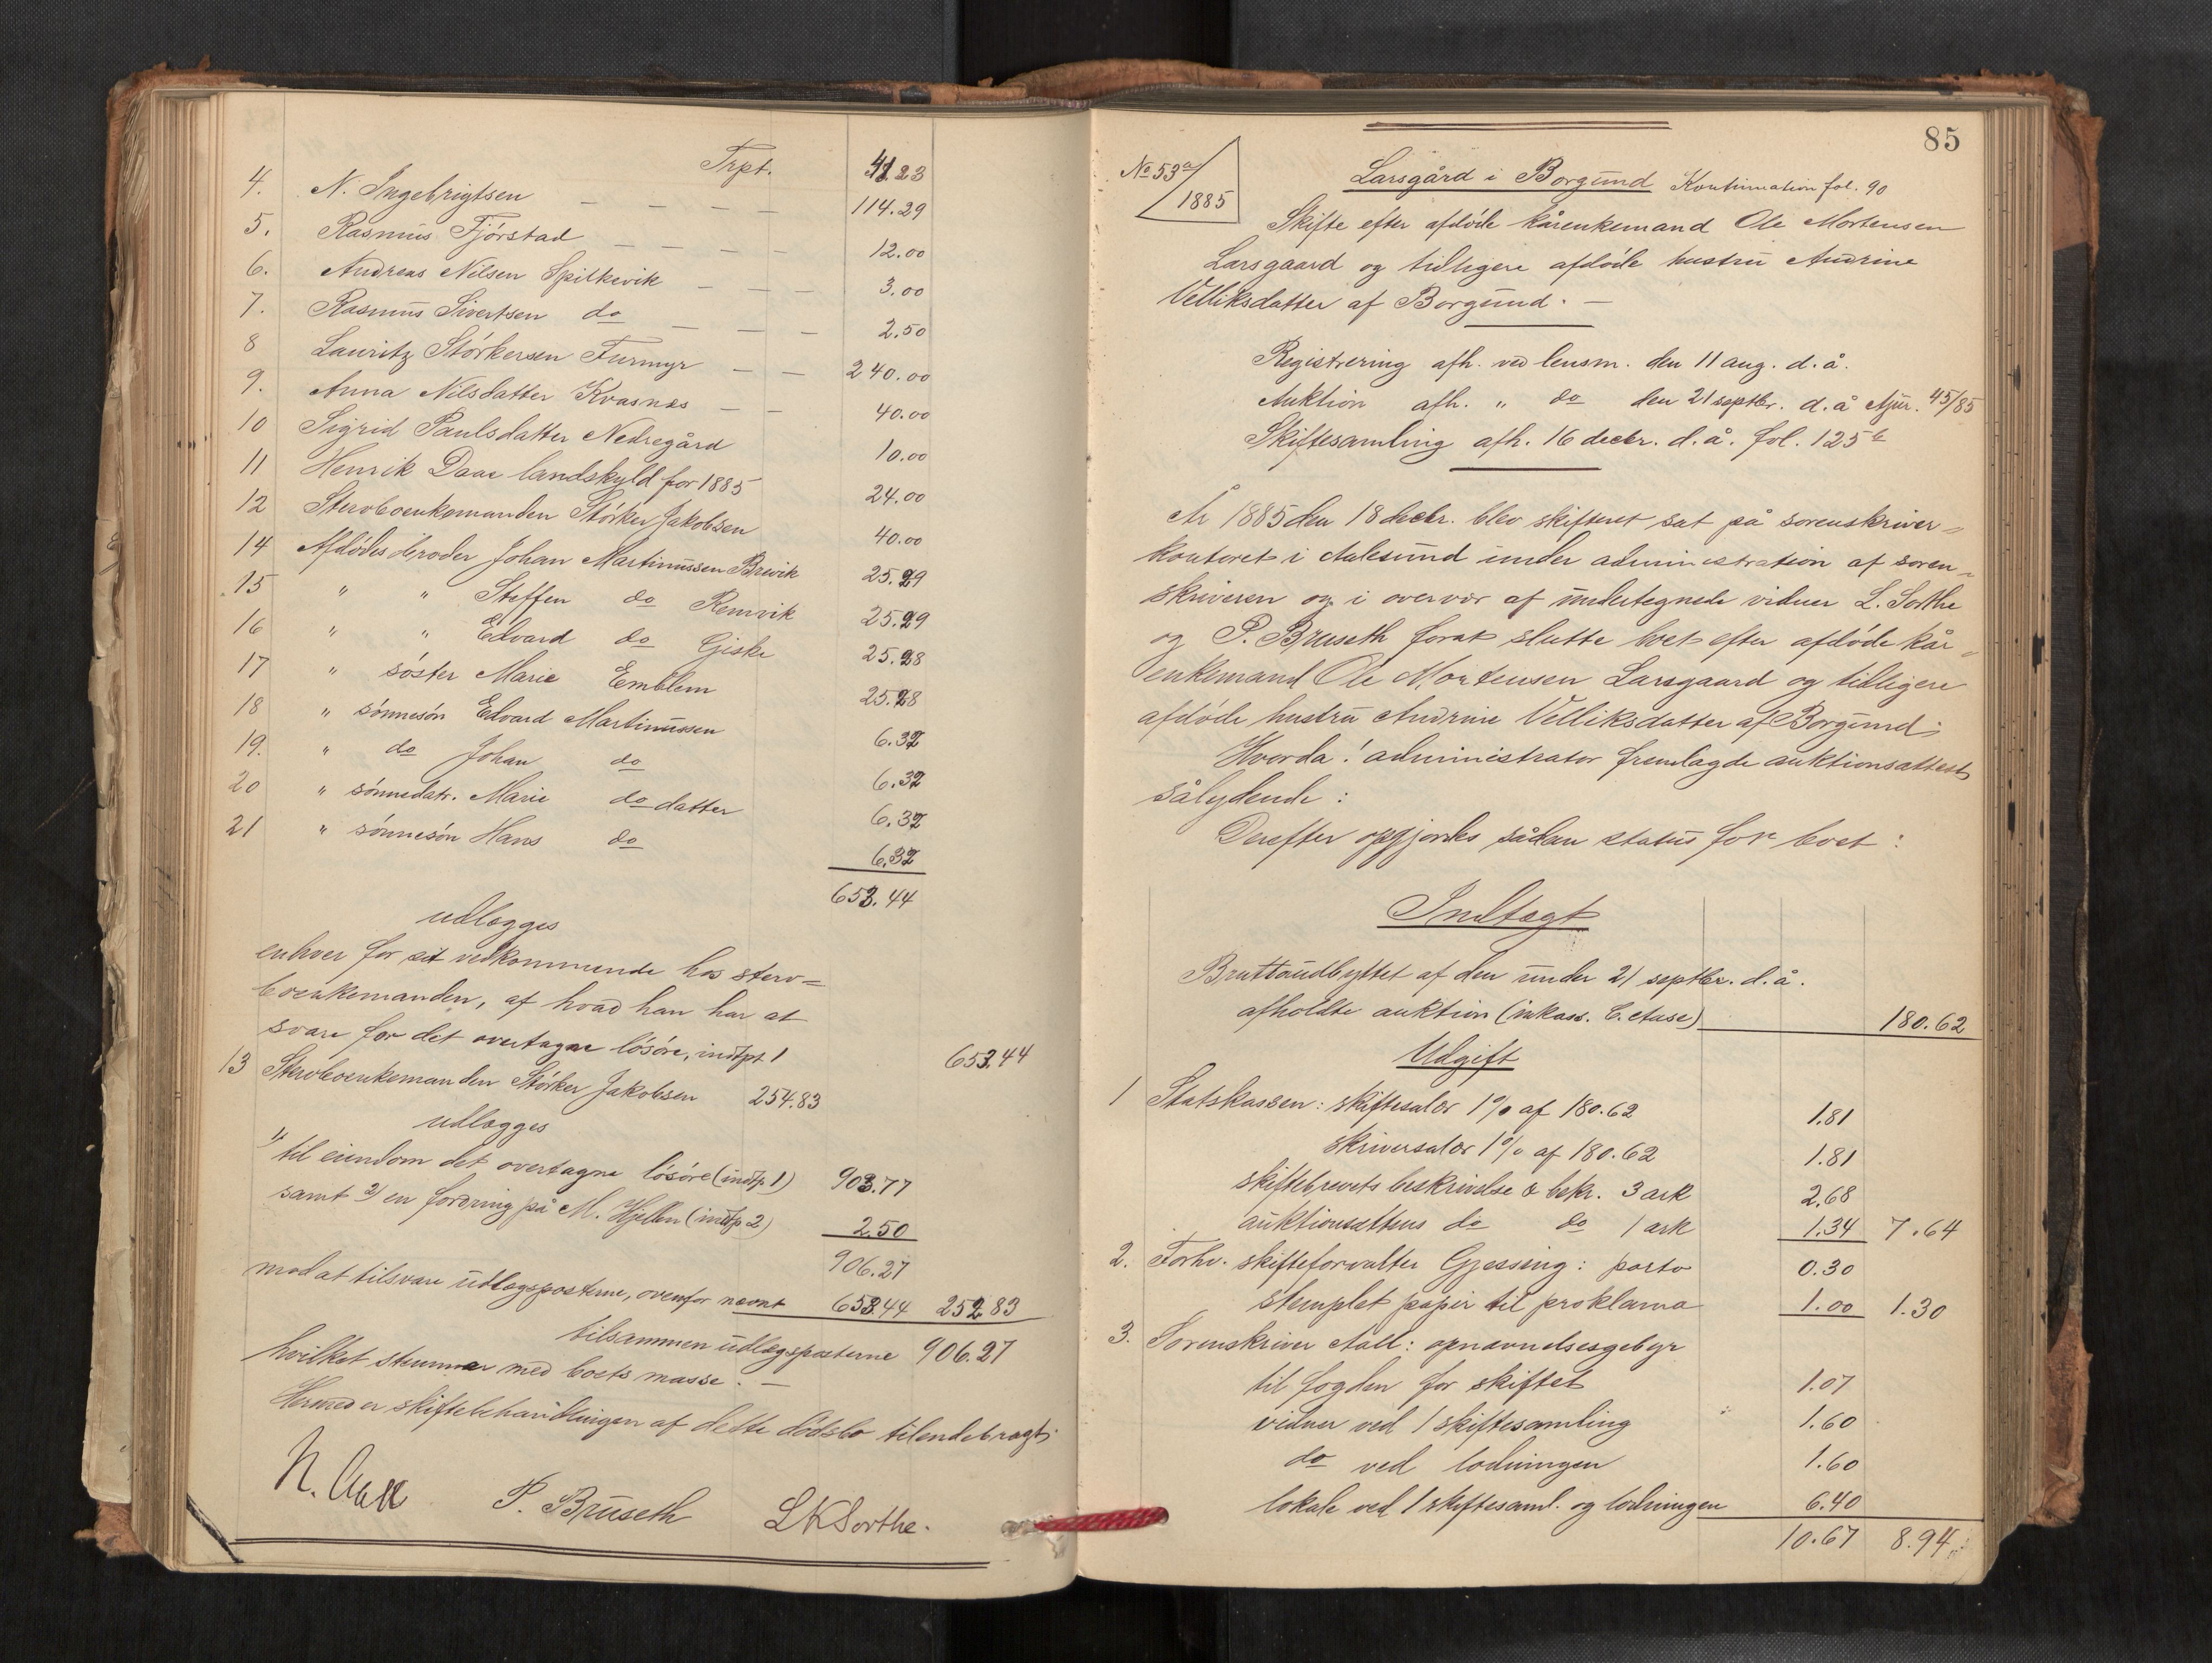 Trpt. 41.23
4. N. Ingebrigtsen — — — — 114.29
5. Rasmus Fjørstad — — — — 12.00
6. Andreas Nilsen Spilkevik — — — 3.00
7. Rasmus Sivertsen do — — — 2.50
8 Lauritz Størkersen Furmyr — — 240.00
9. Anna Nilsdatter Kvasnes — — 40.00
10 Sigrid Paulsdatter Nedregård 10.00
11 Henrik Daae landskyld for 1885 24.00
12 Stervboenkemanden Størker Jakobsen 40.00
14 Afdødes broder Johan Martinussen Brevik 25.29
15 " " Steffen do Remvik 25.29
16 " " Edvard do Giske 25.28
17 " søster Marie Emblem 25.28
18 " sønnesøn Edvard Martinussen 6.32
19. " do Johan do 6.32
20 " sønnedatr. Marie do datter 6.32
21 " sønnesøn Hans do 6.32
653.44
udlægges
enhver for sit vedkommende hos sterv=
boenkemanden, af hvad han har at
svare for det overtagne løsøre, indtpt 1 653.44
13 Stervboenkemanden Størker Jakobsen 254.83
udlægges
1) til eiendom det overtagne løsøre (indtp. 1) 903.77
samt 2) en fordring på M. Hjellen (indtp 2) 2.50
906.27
mod at tilsvare udlægsposterne, ovenfor nævnt 653.44 252.83
tilsammen udlægsposterne 906.27
hvilket stemmer med boets masse. —
Hermed er skiftebehandlingen af dette dødsbo tilendebragt.
N. Aall P. Bruseth LKSorthe.
85
No 53a/1885
Larsgård i Borgund Kontinuation fol. 90
Skifte efter afdøde kårenkemand Ole Mortensen
Larsgaard og tidligere afdøde hustru Andrine
Velliksdatter af Borgund. —
Registrering afh. ved lensm. den 11 aug. d. å.
Auktion afh. " do den 21 septbr. d. å Ajur. 45/85
Skiftesamling afh. 16 decbr. d. å. fol. 125 b
År 1885 den 18 decbr. blev skifteret sat på sorenskriver=
kontoret i Aalesund under administration af soren=
skriveren og i overvær af undertegnede vidner L. Sorthe
og P. Bruseth forat slutte boet efter afdøde kår=
enkemand Ole Mortensen Larsgaard og tidligere
afdøde hustru Andrine Velliksdatter af Borgund.
Hvorda! administrator fremlagde auktionsattest
sålydende:
Derefter opgjordes sådan status for boet:
Indtægt
Bruttoudbyttet af den under 21 septbr. d. å.
afholdte auktion (inkass. C. Aase) 180.62
Udgift
1 Statskassen: skiftesalær 1% af 180.62 1.81
skriversalær 1% af 180.62 1.81
skiftebrevets beskrivelse & bekr. 3 ark 2.68
auktionsattens do do 1 ark 1.34 7.64
2. Forhv. skifteforvalter Gjessing: porto 0.30
stemplet papir til proklama 1.00 1.30
3. Sorenskriver Aall: opnævnelsesgebyr
til fogden for skiftet 1.07
vidner ved 1 skiftesamling 1.60
do ved lodningen 1.60
lokale ved 1 skiftesaml. og lodningen 6.40
10.67 8.94